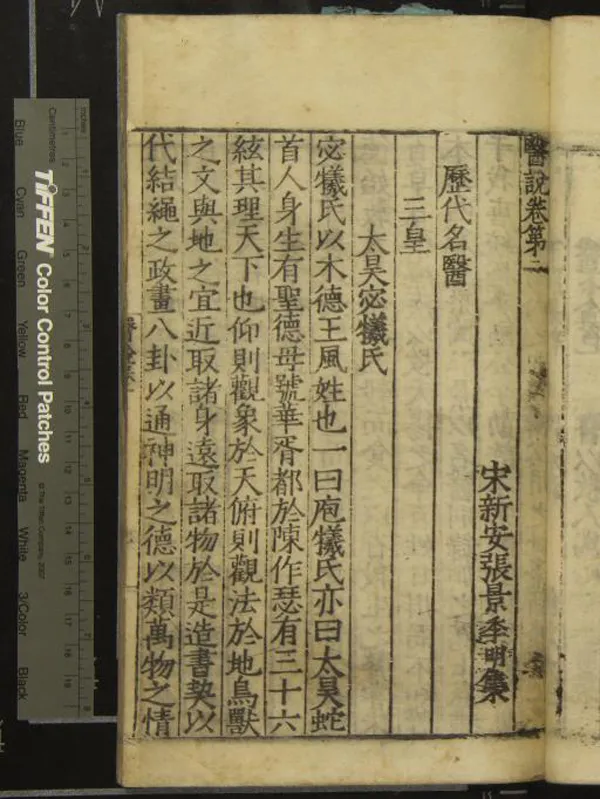 醫說卷第
宋新安張景季明集
歷代名醫
三皇
太昊宓犧氏
宓犧氏以木德王風姓也一曰庖犧氏亦曰太昊蛇
首人身生有聖德母號華胥都於陳作瑟有三十六
絃其理天下也仰則觀象於天俯則觀法於地鳥獸
之文與地之宜近取諸身遠取諸物於是造書契以
代結繩之政畫八卦以通神明之德以類萬物之情
Inches
Centimetres
TIFFEN Color Control Patches
© The Tiffen Company, 2007
Blue Cyan Green Yellow Red Magenta White 3/Color Black